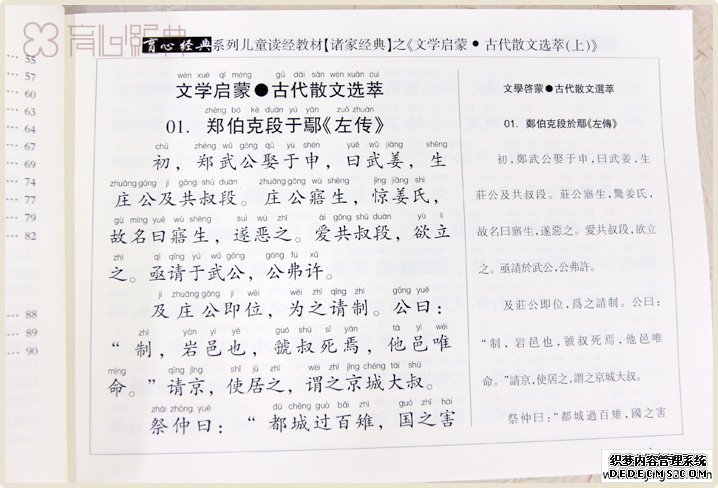 育心经典
育心经典系列儿童读经教材【诸家经典】之《文学启蒙●古代散文选萃(上)》
55
57
60
63
64
66
68
69
74
77
79
82
88
89
90
wén xué qǐ méng gǔ dài sǎn wén xuǎn cuì
文学启蒙●古代散文选萃
zhèng bó kè duàn yú yān zuǒ zhuàn
01. 郑伯克段于鄢《左传》
chū zhèng wǔ gōng qǔ yú shēn yuē wǔ jiāng shēng
初，郑武公娶于申，曰武姜，生
zhuāng gōng jí gōng shū duàn zhuāng gōng wù shēng jīng jiāng shì
庄公及共叔段。庄公寤生，惊姜氏，
gù míng yuē wù shēng suì wù zhī ài gōng shū duàn yù lì
故名曰寤生，遂恶之。爱共叔段，欲立
zhī qì qǐng yú wǔ gōng gōng fú xǔ
之。亟请于武公，公弗许。
jí zhuāng gōng jí wèi wèi zhī qǐng zhì gōng yuē
及庄公即位，为之请制。公曰：
zhì yán yì yě guó shū sǐ yān tā yì wéi
“制，岩邑也，虢叔死焉，他邑唯
mìng qǐng jīng shǐ jū zhī wèi zhī jīng chéng tài shū
命。”请京，使居之，谓之京城大叔。
zhài zhòng yuē dū chéng guò bǎi zhì guó zhī hài
祭仲曰：“都城过百雉，国之害
文學啓蒙●古代散文選萃
01. 鄭伯克段於鄢《左傳》
初，鄭武公娶于申，曰武姜，生
莊公及共叔段。莊公寤生，驚姜氏，
故名曰寤生，遂惡之。愛共叔段，欲立
之。亟請於武公，公弗許。
及莊公即位，爲之請制。公曰：
“制，岩邑也，虢叔死焉，他邑唯
命。”請京，使居之，謂之京城大叔。
祭仲曰：“都城過百雉，國之害
织梦内容管理系统
DEDECMS.COM